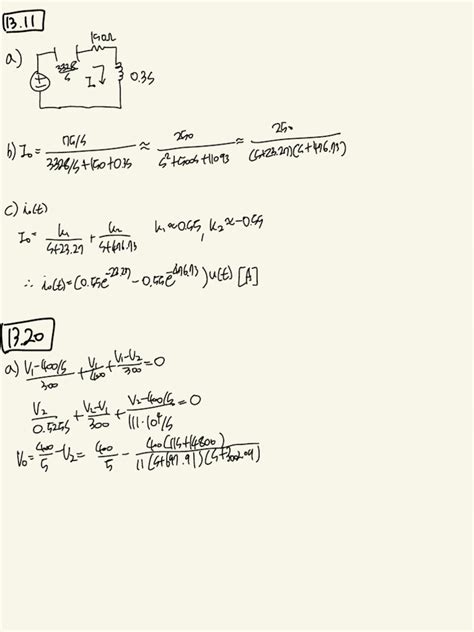 13.11
a)
150Ω
3328/s
I₀
0.3s
b) I₀ = 75/s / (3328/s + 150 + 0.3s) ≈ 250 / (s² + 500s + 11093) ≈ 250 / ((s+23.27)(s+476.73))
c) i₀(t)
I₀ = k₁/(s+23.27) + k₂/(s+476.73) k₁ ≈ 0.55, k₂ ≈ -0.55
∴ i₀(t) = (0.55e^-23.27 - 0.55e^-476.73)u(t) [A]
13.20
a) (V₁-400/s)/300 + V₁/400 + (V₁-V₂)/300 = 0
V₂/0.525s + (V₂-V₁)/300 + (V₂-400/s)/(111·10⁶/s) = 0
V₀ = 400/s - V₂ = 400/s - 400(11s+14800) / (11(s+697.91)(s+